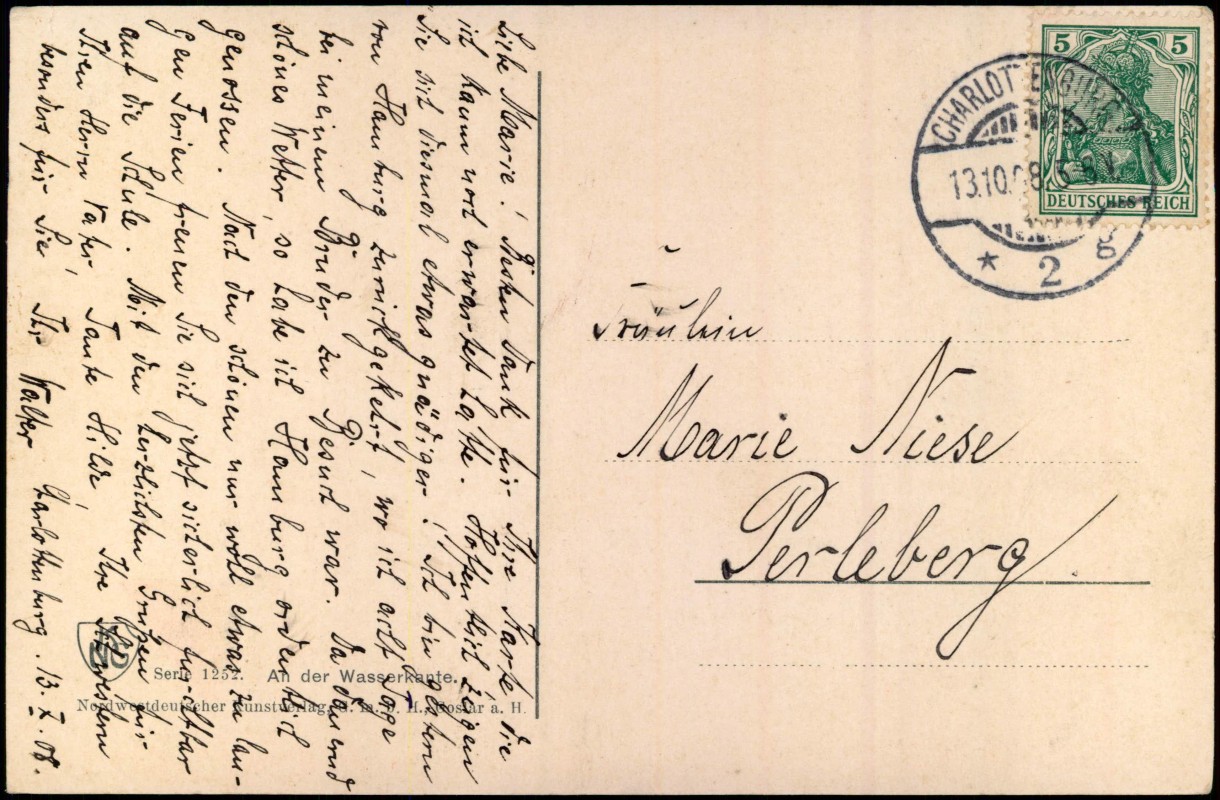 Liebe Marie! Besten Dank für Ihre Karte die
ich kaum noch erwartet hatte. Hoffentlich zeigen
Sie sich diesmal etwas gnädiger! Ich bin gestern
von Hamburg zurückgekehrt, wo ich acht Tage
bei meinem Bruder zu Besuch war. Da dauernd
schönes Wetter, so habe ich Hamburg ordentlich
genossen. Nach den schönen nur wohl etwas zu lan-
gen Ferien freuen Sie sich jetzt sicherlich furchtbar
auf die Schule. Mit den herzlichsten Grüßen für
Ihren Herrn Vater, Tante Hilde, Ihre Schwestern
besonders für Sie, Ihr Walter
Charlottenburg. 13. X. 08.
Serie 1252. An der Wasserkante.
Nordwestdeutscher Kunstverlag, G. m. b. H., Goslar a. H.
5 5
DEUTSCHES REICH
CHARLOTTENBURG
13.10.08. 5-6 V.
* 2 g
Fräulein
Marie Niese
Perleberg